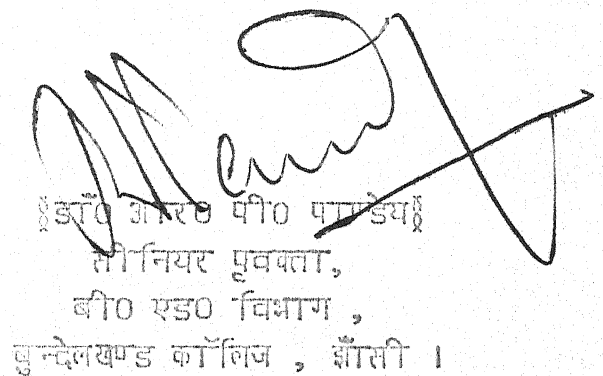 (डॉ० आर० पी० पाण्डेय)
सीनियर प्रवक्ता,
बी० एड० विभाग ,
बुन्देलखण्ड कॉलिज , झाँसी ।